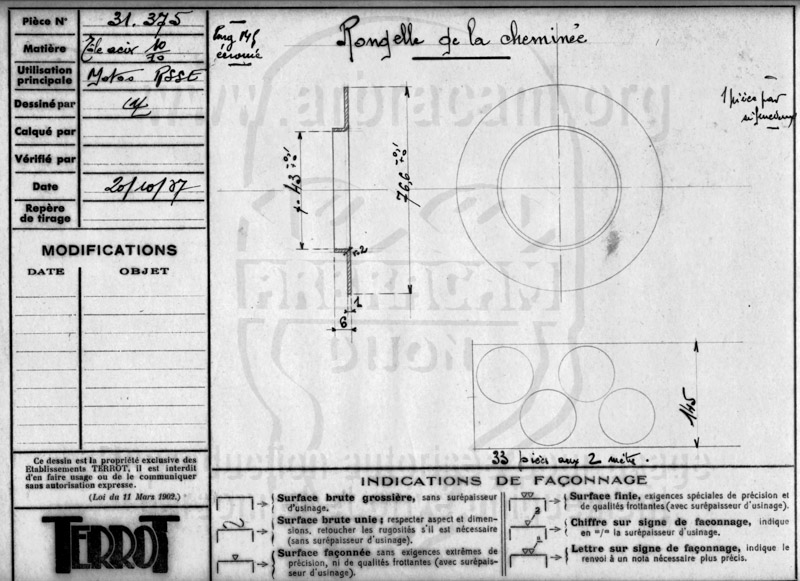 Pièce N° 31.375
Matière Tôle acier 10/10
Utilisation
principale Motos RSSE
Dessiné par
Calqué par
Vérifié par
Date 20/10/37
Repère
de tirage
MODIFICATIONS
DATE OBJET
Ce dessin est la propriété exclusive des
Etablissements TERROT, il est interdit
d'en faire usage ou de le communiquer
sans autorisation expresse.
(Loi du 11 Mars 1902.)
TERROT
Rondelle de la cheminée
1 pièce par
43 +0,1 -0
76,6 +0 -0,1
r=2
1
6
145
33 pièces aux 2 mètr.
INDICATIONS DE FAÇONNAGE
Surface brute grossière, sans surépaisseur
d'usinage.
Surface brute unie; respecter aspect et dimen-
sions, retoucher les rugosités s'il est nécessaire
(sans surépaisseur d'usinage).
Surface façonnée sans exigences extrêmes de
précision, ni de qualités frottantes (avec surépais-
seur d'usinage).
Surface finie, exigences spéciales de précision et
de qualités frottantes (avec surépaisseur d'usinage).
Chiffre sur signe de façonnage, indique
en =/= la surépaisseur d'usinage.
Lettre sur signe de façonnage, indique le
renvoi à un nota nécessaire plus précis.
www.arbracam.org
ARBRACAM